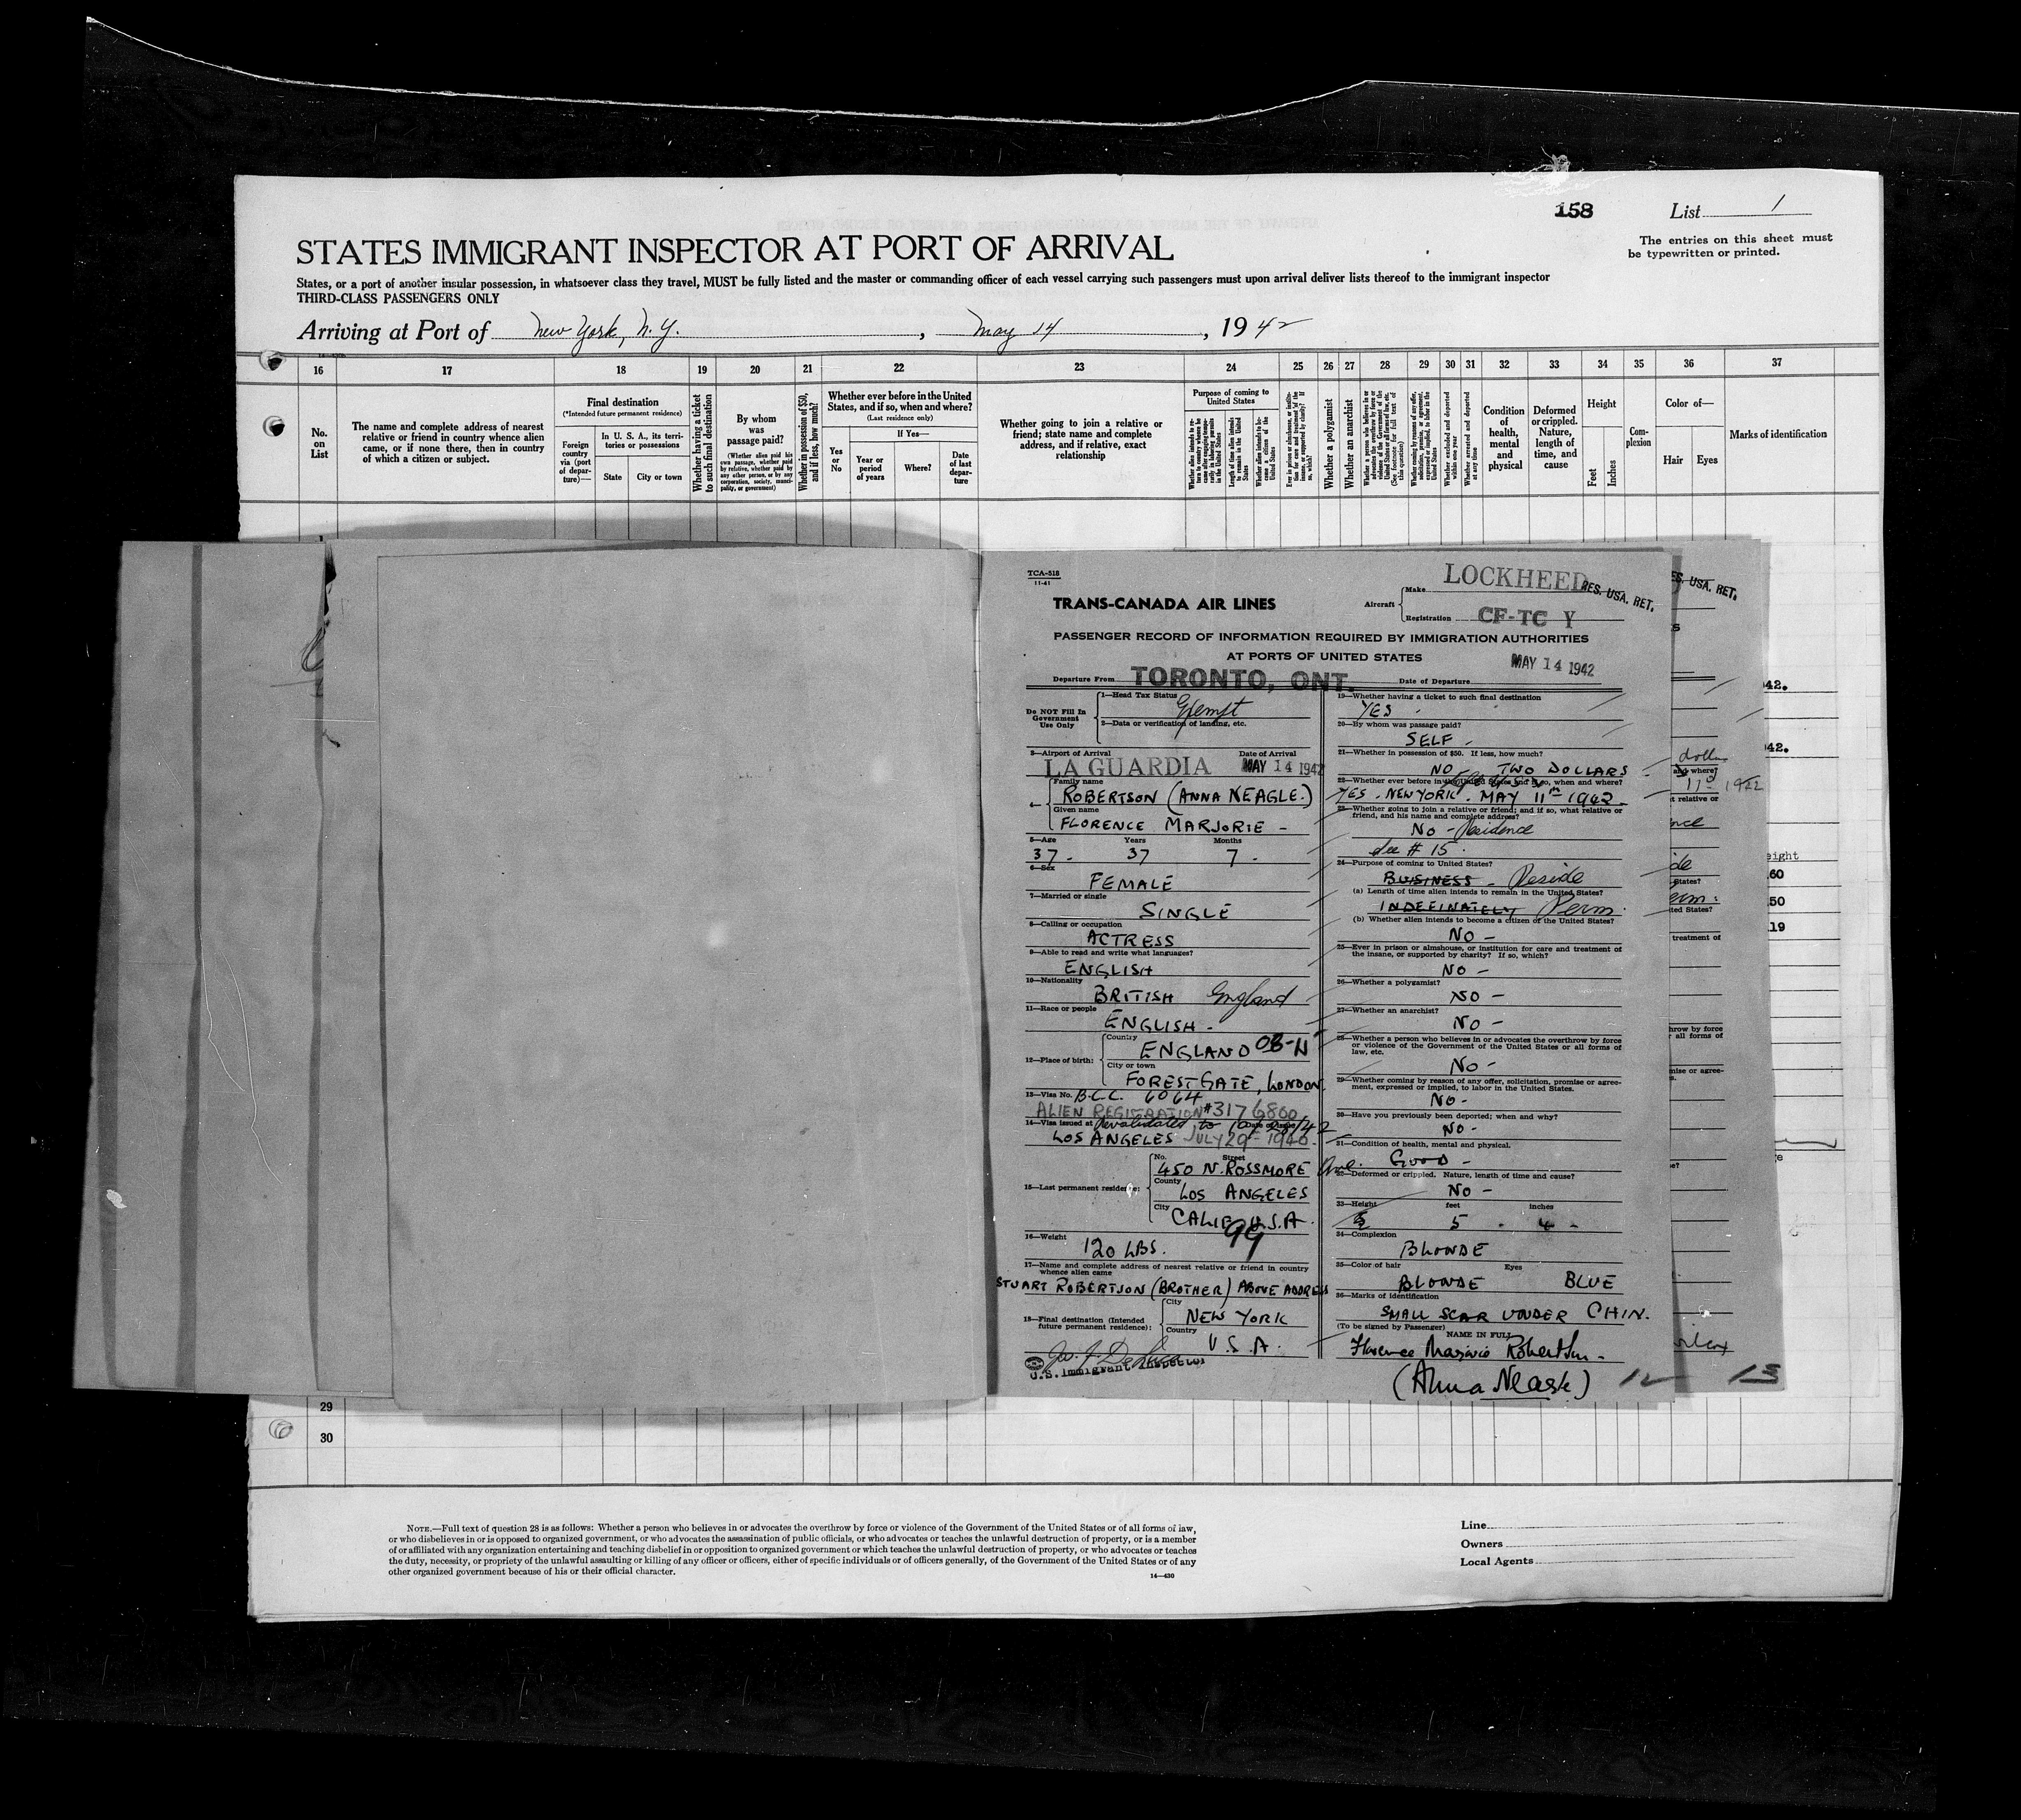 158
List 1
STATES IMMIGRANT INSPECTOR AT PORT OF ARRIVAL
The entries on this sheet must
be typewritten or printed.
States, or a port of another insular possession, in whatsoever class they travel, MUST be fully listed and the master or commanding officer of each vessel carrying such passengers must upon arrival deliver lists thereof to the immigrant inspector
THIRD-CLASS PASSENGERS ONLY
Arriving at Port of New York, N.Y. , May 14 , 1942
16 17 18 19 20 21 22 23 24 25 26 27 28 29 30 31 32 33 34 35 36 37
No.
on
List
The name and complete address of nearest
relative or friend in country whence alien
came, or if none there, then in country
of which a citizen or subject.
Final destination
(*Intended future permanent residence)
Foreign
country
via (port
of depar-
ture)—
In U. S. A., its terri-
tories or possessions
State
City or town
Whether having a ticket
to such final destination
By whom
was
passage paid?
(Whether alien paid his
own passage, whether paid
by relative, whether paid by
any other person, or by any
corporation, society, munici-
pality, or government)
Whether in possession of $50,
and if less, how much?
Whether ever before in the United
States, and if so, when and where?
(Last residence only)
If Yes—
Yes
or
No
Year or
period
of years
Where?
Date
of last
depar-
ture
Whether going to join a relative or
friend; state name and complete
address, and if relative, exact
relationship
Purpose of coming to
United States
Whether a polygamist
Whether an anarchist
Condition
of
health,
mental
and
physical
Deformed
or crippled.
Nature,
length of
time, and
cause
Height
Feet
Inches
Com-
plexion
Color of—
Hair
Eyes
Marks of identification
TCA-518
11-41
TRANS-CANADA AIR LINES
Aircraft
Make LOCKHEED
RES. USA. RET.
Registration CF-TC Y
PASSENGER RECORD OF INFORMATION REQUIRED BY IMMIGRATION AUTHORITIES
AT PORTS OF UNITED STATES
Departure From TORONTO, ONT. Date of Departure MAY 14 1942
Do NOT Fill In
Government
Use Only
1—Head Tax Status
Exempt
2—Data or verification of landing, etc.
3—Airport of Arrival Date of Arrival
LA GUARDIA MAY 14 1942
4—
Family name
ROBERTSON (ANNA NEAGLE.)
Given name
FLORENCE MARJORIE -
5—Age Years Months
37. 37 7.
6—Sex
FEMALE
7—Married or single
SINGLE
8—Calling or occupation
ACTRESS
9—Able to read and write what languages?
ENGLISH
10—Nationality
BRITISH England
11—Race or people
ENGLISH -
12—Place of birth:
Country
ENGLAND
City or town
FOREST GATE, LONDON.
13—Visa No. B.C.C. 6064
ALIEN REGISTRATION #3176800
14—Visa issued at Revalidated to 10/28/42
LOS ANGELES JULY 29th 1940.
15—Last permanent residence:
No. Street
450 N. ROSSMORE Ave.
County
LOS ANGELES
City
CALIF. U.S.A.
99
16—Weight
120 LBS.
17—Name and complete address of nearest relative or friend in country
whence alien came
STUART ROBERTSON (BROTHER) ABOVE ADDRESS
18—Final destination (Intended
future permanent residence):
City
NEW YORK
Country
U.S.A.
U.S. Immigrant Inspector
19—Whether having a ticket to such final destination
YES
20—By whom was passage paid?
SELF
21—Whether in possession of $50. If less, how much?
NO TWO DOLLARS
22—Whether ever before in the United States and if so, when and where?
YES. NEW YORK. MAY 11th 1942.
23—Whether going to join a relative or friend; and if so, what relative or
friend, and his name and complete address?
NO - Residence
See # 15.
24—Purpose of coming to United States?
BUISINESS - Reside
(a) Length of time alien intends to remain in the United States?
INDEFINATELY Perm.
(b) Whether alien intends to become a citizen of the United States?
NO -
25—Ever in prison or almshouse, or institution for care and treatment of
the insane, or supported by charity? If so, which?
NO -
26—Whether a polygamist?
NO -
27—Whether an anarchist?
NO -
28—Whether a person who believes in or advocates the overthrow by force
or violence of the Government of the United States or all forms of
law, etc.
NO -
29—Whether coming by reason of any offer, solicitation, promise or agree-
ment, expressed or implied, to labor in the United States.
NO -
30—Have you previously been deported; when and why?
NO -
31—Condition of health, mental and physical.
GOOD -
32—Deformed or crippled. Nature, length of time and cause?
NO -
33—Height feet inches
5 5 . 4 -
34—Complexion
BLONDE
35—Color of hair Eyes
BLONDE BLUE
36—Marks of identification
SMALL SCAR UNDER CHIN.
(To be signed by Passenger)
NAME IN FULL
Florence Marjorie Robertson -
(Anna Neagle)
12 13
29
30
NOTE.—Full text of question 28 is as follows: Whether a person who believes in or advocates the overthrow by force or violence of the Government of the United States or of all forms of law,
or who disbelieves in or is opposed to organized government, or who advocates the assassination of public officials, or who advocates or teaches the unlawful destruction of property, or is a member
of or affiliated with any organization entertaining and teaching disbelief in or opposition to organized government or which teaches the unlawful destruction of property, or who advocates or teaches
the duty, necessity, or propriety of the unlawful assaulting or killing of any officer or officers, either of specific individuals or of officers generally, of the Government of the United States or of any
other organized government because of his or their official character.
14—430
Line
Owners
Local Agents